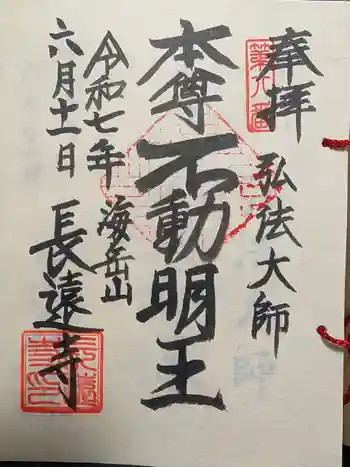 奉拝
弘法大師
本尊不動明王
海岳山
長遠寺
令和七年
六月十一日